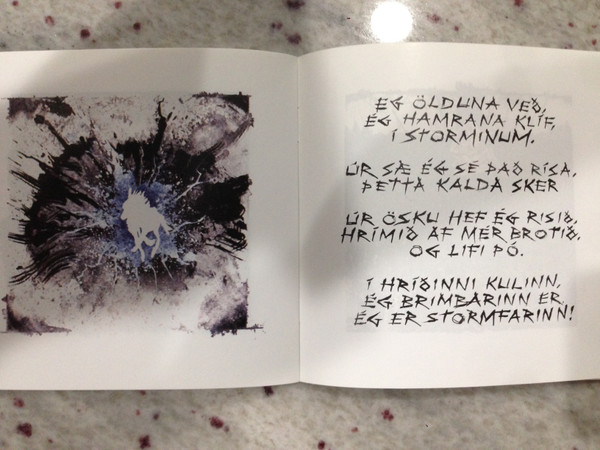 ÉG ÖLDUNA VEÐ,
ÉG HAMRANA KLÍF,
Í STORMINUM.
ÚR SÆ ÉG SÉ ÞAÐ RÍSA,
ÞETTA KALDA SKER
ÚR ÖSKU HEF ÉG RISIÐ,
HRÍMIÐ AF MÉR BROTIÐ,
OG LIFI ÞÓ.
Í HRÍÐINNI KULINN,
ÉG BRIMBARINN ER,
ÉG ER STORMFARINN!